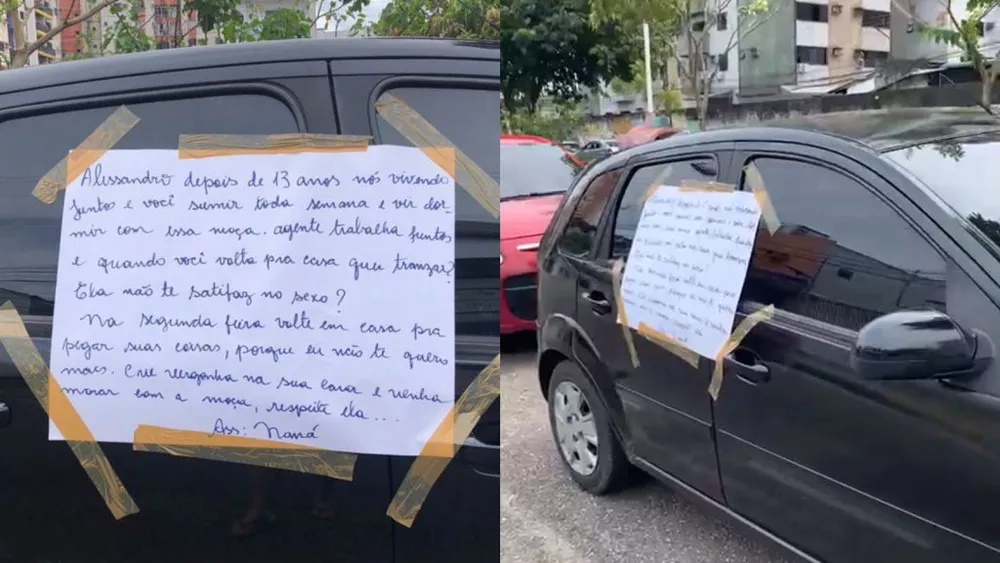 Alissandro depois de 13 anos nós vivendo
juntos e você sumir toda semana e vir dor-
mir com essa moça. agente trabalha juntos
e quando você volta pra casa quer tranzar?
Ela não te satifaz no sexo?
Na segunda feira volte em casa pra
pegar suas coisas, porque eu não te quero
mais. Crie vergonha na sua cara e venha
morar com a moça, respeite ela...
Ass: Naná